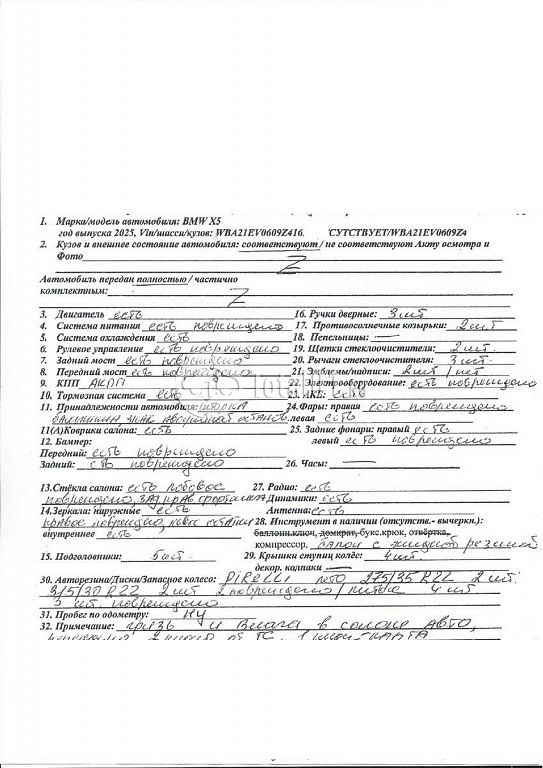 1. Марка/модель автомобиля: BMW X5
год выпуска 2025, Vin/шасси/кузов: WBA21EV0609Z416. СУТСТВУЕТ/WBA21EV0609Z4
2. Кузов и внешнее состояние автомобиля: соответствуют / не соответствуют Акту осмотра и
Фото Z
Автомобиль передан полностью / частично
комплектным: Z
3. Двигатель есть 16. Ручки дверные: 3 шт
4. Система питания есть повреждено 17. Противосолнечные козырьки: 2 шт
5. Система охлаждения есть 18. Пепельницы: —
6. Рулевое управление есть повреждено 19. Щетки стеклоочистителя: 2 шт
7. Задний мост есть повреждено 20. Рычаги стеклоочистителя: 3 шт.
8. Передний мост есть повреждено 21. Эмблемы/надписи: 2 шт / 1 шт
9. КПП АКПП 22. Электрооборудование: есть повреждено
10. Тормозная система есть 23. АКБ: есть
11. Принадлежности автомобиля: шторка 24. Фары: правая есть повреждено
багажника, знак аварийной останов. левая есть
11(А)Коврики салона: есть 25. Задние фонари: правый есть
12. Бампер: левый есть повреждено
Передний: есть повреждено
Задний: есть повреждено 26. Часы: —
13.Стёкла салона: есть лобовое 27. Радио: есть
повреждено, зад. прав. Динамики: есть
14.Зеркала: наружные есть Антенна: есть
правое повреждено, левое 28. Инструмент в наличии (отсутств.- вычеркн.):
внутреннее есть баллонн.ключ, домкрат, букс.крюк, отвёртка,
компрессор, балон с жидкой резиной
15. Подголовники: 5 шт 29. Крышки ступиц колёс: 4 шт.
декор. колпаки —
30. Авторезина/Диски/Запасное колесо: PIRELLI лето 275/35 R22 2 шт.
315/30 R22 2 шт 2 повреждено / литые 4 шт
3 шт. повреждено
31. Пробег по одометру: НУ
32. Примечание: грязь и влага в салоне авто,
2 ключа от ТС. 1 ключ-карта